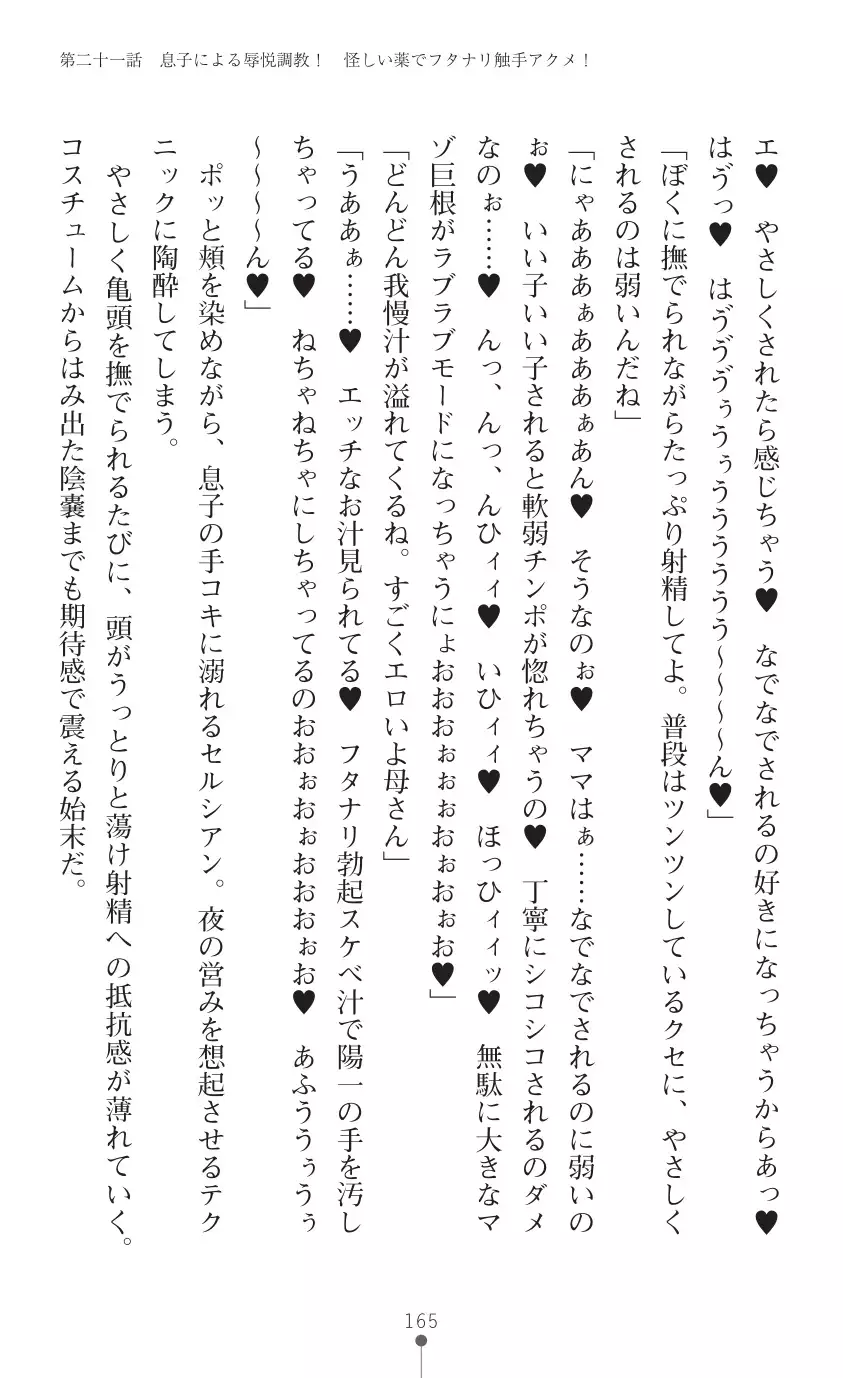 第二十一話　息子による辱悦調教！　怪しい薬でフタナリ触手アクメ！
エ♥　やさしくされたら感じちゃう♥　なでなでされるの好きになっちゃうからあっ♥
はゔっ♥　はゔゔゔぅうぅうううううう～～～～ん♥」
「ぼくに撫でられながらたっぷり射精してよ。普段はツンツンしているクセに、やさしく
されるのは弱いんだね」
「にゃあああぁあああぁあん♥　そうなのぉ♥　ママはぁ……なでなでされるのに弱いの
ぉ♥　いい子いい子されると軟弱チンポが惚れちゃうの♥　丁寧にシコシコされるのダメ
なのぉ……♥　んっ、んっ、んひィィ♥　いひィィ♥　ほっひィィッ♥　無駄に大きなマ
ゾ巨根がラブラブモードになっちゃうにょおおおぉぉぉおぉおぉお♥」
「どんどん我慢汁が溢れてくるね。すごくエロいよ母さん」
「うああぁ……♥　エッチなお汁見られてる♥　フタナリ勃起スケベ汁で陽一の手を汚し
ちゃってる♥　ねちゃねちゃにしちゃってるのおおぉおぉおおおぉお♥　あふううぅうぅ
～～～～ん♥」
ポッと頬を染めながら、息子の手コキに溺れるセルシアン。夜の営みを想起させるテク
ニックに陶酔してしまう。
やさしく亀頭を撫でられるたびに、頭がうっとりと蕩け射精への抵抗感が薄れていく。
コスチュームからはみ出た陰嚢までも期待感で震える始末だ。
165